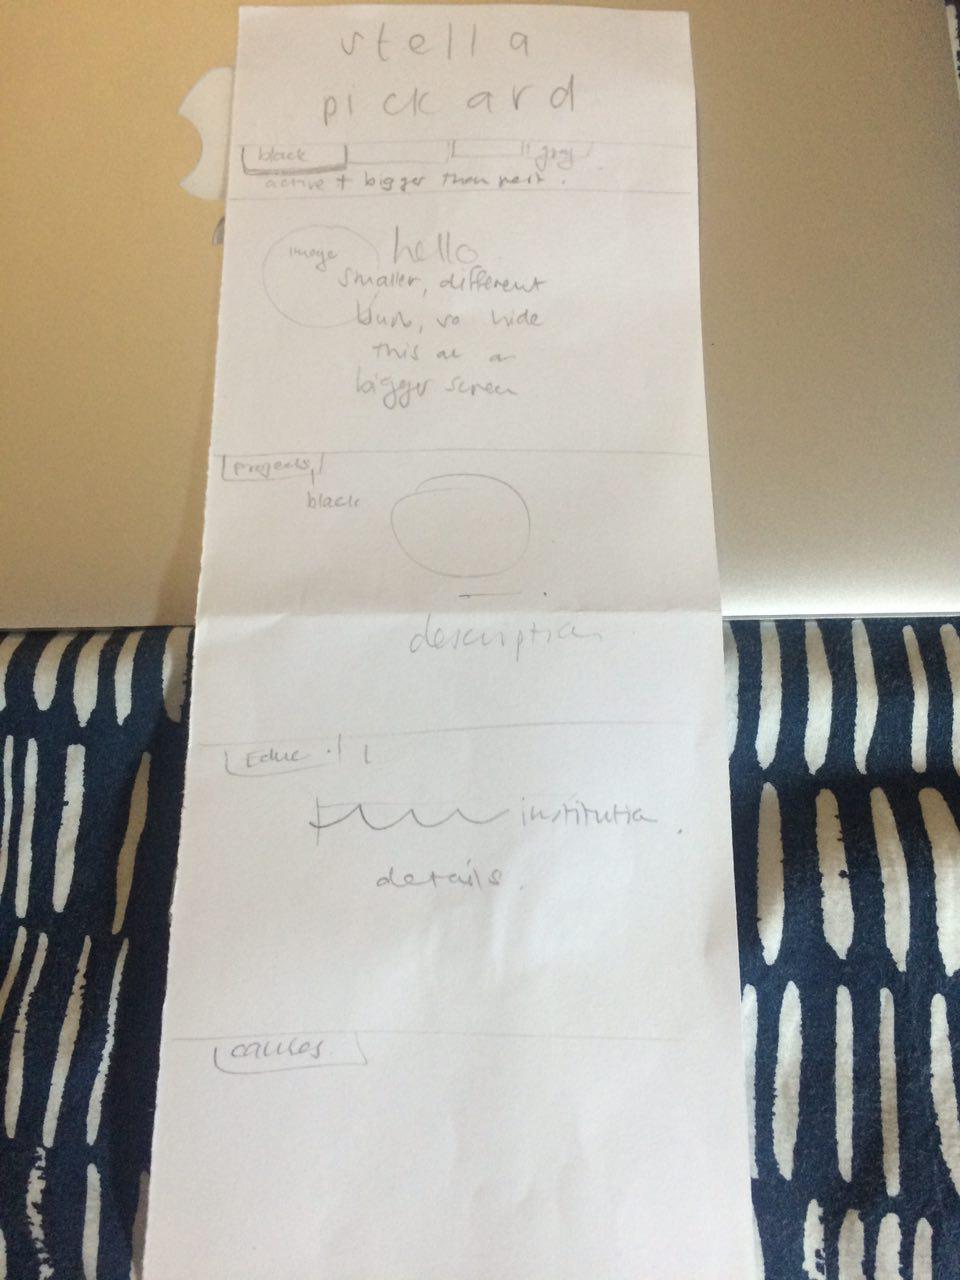 stella
pickard
black gray
active + bigger than next.
image hello
smaller, different
so hide
this at a
bigger screen
projects
black
description
Educ.
institution
details.
causes